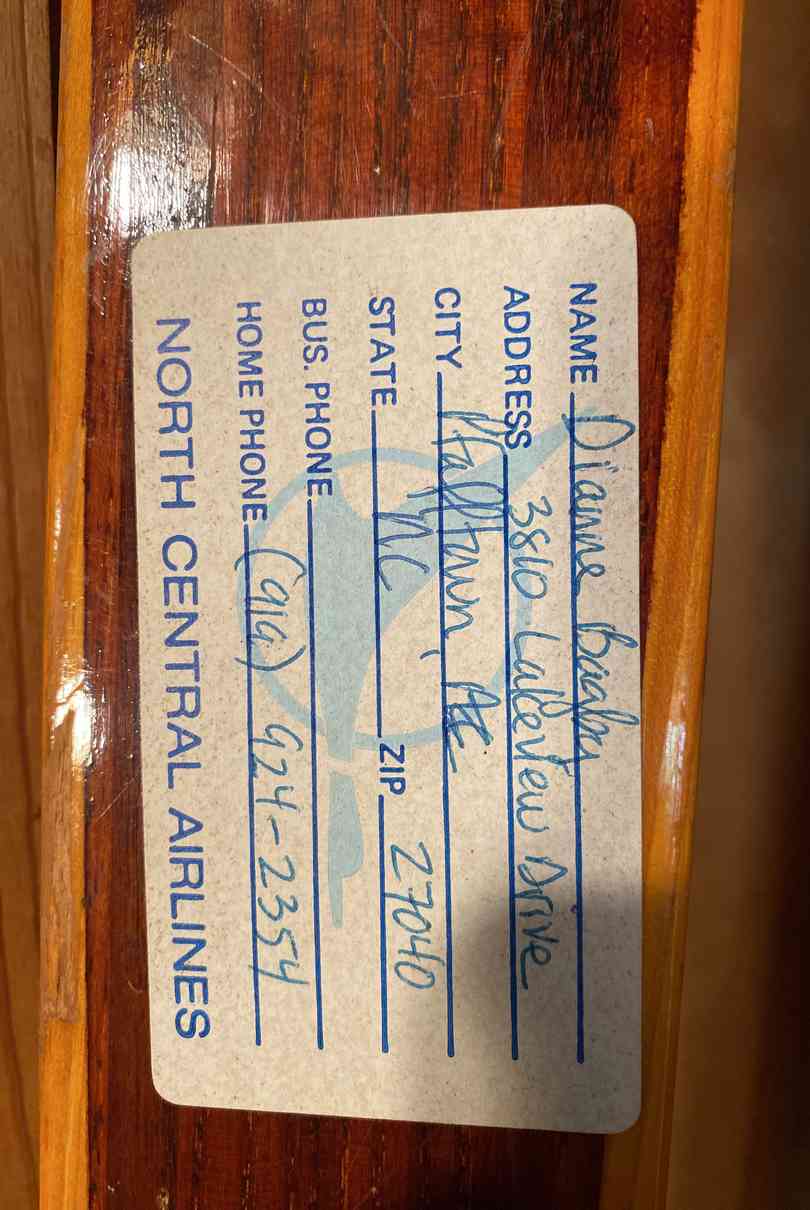 NAME Dianne Bagby
ADDRESS 3810 Lakeview Drive
CITY Pfafftown, NC
STATE NC ZIP 27040
BUS. PHONE
HOME PHONE (919) 924-2354
NORTH CENTRAL AIRLINES